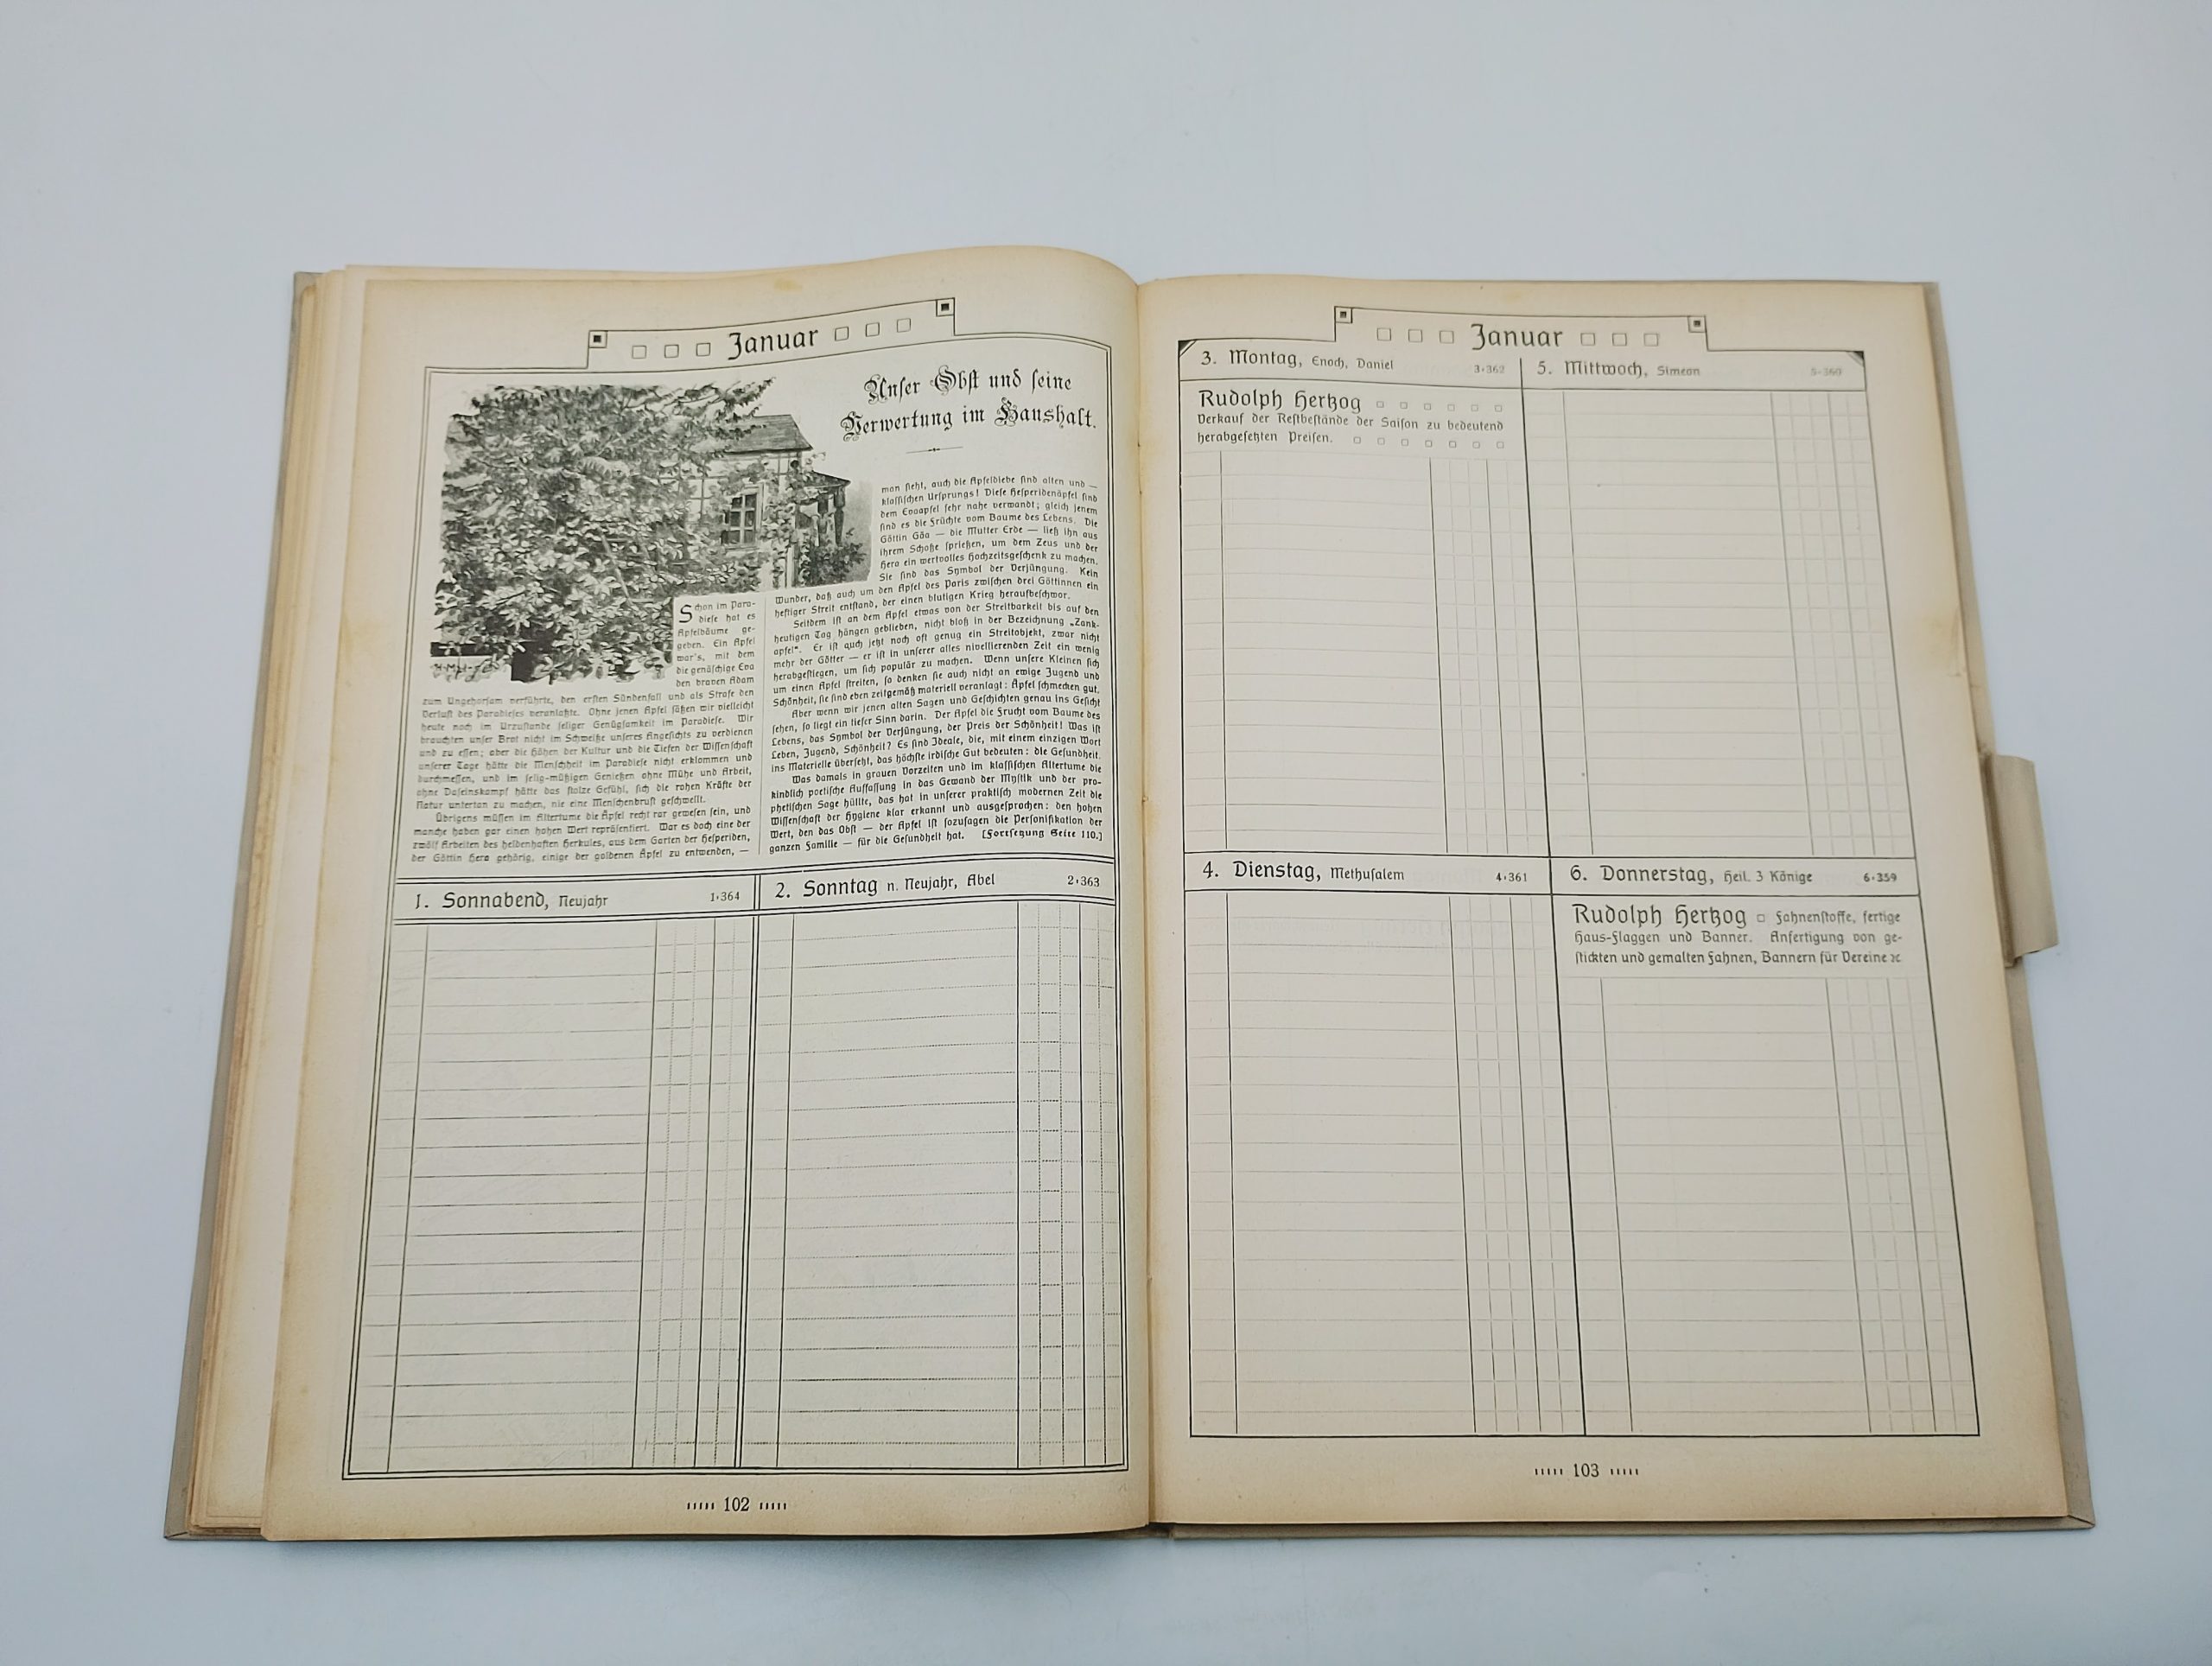 Januar
Unser Obst und seine
Verwertung im Haushalt.
Schon im Para-
diese hat es
Apfelbäume ge-
geben. Ein Apfel
war's, mit dem
die genäschige Eva
den braven Adam
zum Ungehorsam verführte, den ersten Sündenfall und als Strafe den
Verlust des Paradieses veranlaßte. Ohne jenen Apfel säßen wir vielleicht
heute noch im Urzustande seliger Genügsamkeit im Paradiese. Wir
brauchten unser Brot nicht im Schweiße unseres Angesichts zu verdienen
und zu essen; aber die Höhen der Kultur und die Tiefen der Wissenschaft
unserer Tage hätte die Menschheit im Paradiese nicht erklommen und
durchmessen, und im selig-müßigen Genießen ohne Mühe und Arbeit,
ohne Daseinskampf hätte das stolze Gefühl, sich die rohen Kräfte der
Natur untertan zu machen, nie eine Menschenbrust geschwellt.
Übrigens müssen im Altertume die Äpfel recht rar gewesen sein, und
manche haben gar einen hohen Wert repräsentiert. War es doch eine der
zwölf Arbeiten des heldenhaften Herkules, aus dem Garten der Hesperiden,
der Göttin Hera gehörig, einige der goldenen Äpfel zu entwenden, —
man sieht, auch die Apfeldiebe sind alten und —
klassischen Ursprungs! Diese Hesperidenäpfel sind
dem Evaapfel sehr nahe verwandt; gleich jenem
sind es die Früchte vom Baume des Lebens. Die
Göttin Gäa — die Mutter Erde — ließ ihn aus
ihrem Schoße sprießen, um dem Zeus und der
Hera ein wertvolles Hochzeitsgeschenk zu machen.
Sie sind das Symbol der Verjüngung. Kein
Wunder, daß auch um den Apfel des Paris zwischen drei Göttinnen ein
heftiger Streit entstand, der einen blutigen Krieg heraufbeschwor.
Seitdem ist an dem Apfel etwas von der Streitbarkeit bis auf den
heutigen Tag hängen geblieben, nicht bloß in der Bezeichnung „Zank-
apfel“. Er ist auch jetzt noch oft genug ein Streitobjekt, zwar nicht
mehr der Götter — er ist in unserer alles nivellierenden Zeit ein wenig
herabgestiegen, um sich populär zu machen. Wenn unsere Kleinen sich
um einen Apfel streiten, so denken sie auch nicht an ewige Jugend und
Schönheit, sie sind eben zeitgemäß materiell veranlagt: Äpfel schmecken gut.
Aber wenn wir jenen alten Sagen und Geschichten genau ins Gesicht
sehen, so liegt ein tiefer Sinn darin. Der Apfel die Frucht vom Baume des
Lebens, das Symbol der Verjüngung, der Preis der Schönheit! Was ist
Leben, Jugend, Schönheit? Es sind Ideale, die, mit einem einzigen Wort
ins Materielle übersetzt, das höchste irdische Gut bedeuten: die Gesundheit.
Was damals in grauen Vorzeiten und im klassischen Altertume die
kindlich poetische Auffassung in das Gewand der Mystik und der pro-
phetischen Sage hüllte, das hat in unserer praktisch modernen Zeit die
Wissenschaft der Hygiene klar erkannt und ausgesprochen: den hohen
Wert, den das Obst — der Apfel ist sozusagen die Personifikation der
ganzen Familie — für die Gesundheit hat. [Fortsetzung Seite 110.]
1. Sonnabend, Neujahr 1·364
2. Sonntag n. Neujahr, Abel 2·363
102
Januar
3. Montag, Enoch, Daniel 3·362
Rudolph Hertzog
Verkauf der Restbestände der Saison zu bedeutend
herabgesetzten Preisen.
5. Mittwoch, Simeon 5·360
4. Dienstag, Methusalem 4·361
6. Donnerstag, Heil. 3 Könige 6·359
Rudolph Hertzog Fahnenstoffe, fertige
Haus-Flaggen und Banner. Anfertigung von ge-
stickten und gemalten Fahnen, Bannern für Vereine ꝛc.
103